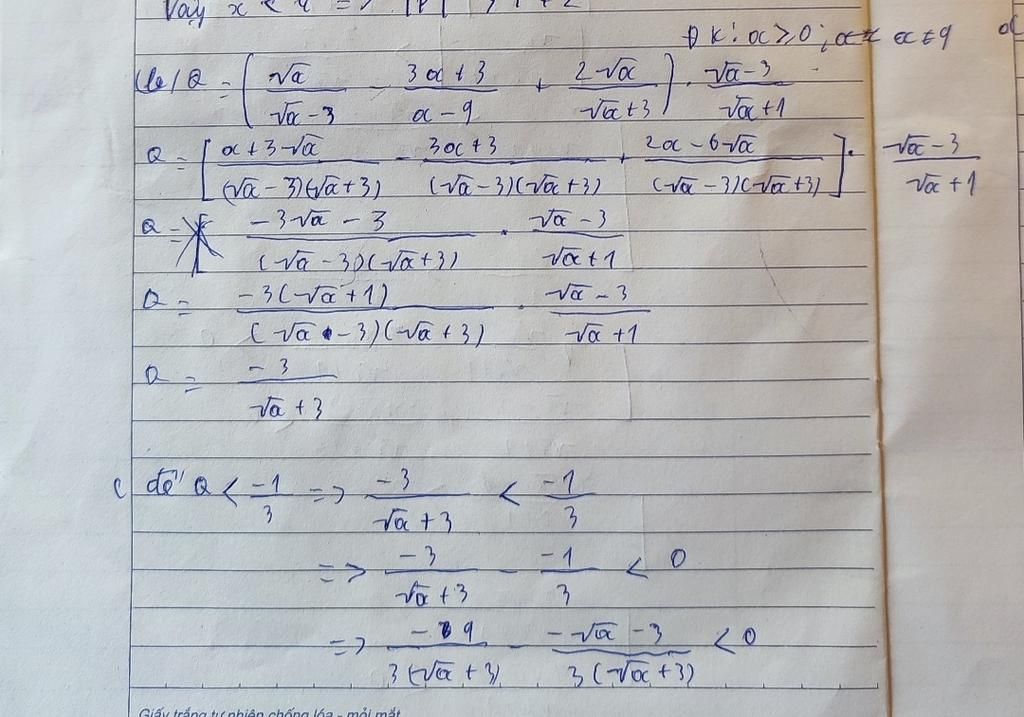 Vậy x < 4 =>
ĐK: x ≥ 0; x ≠ 9
b/ Q = ( √x / (√x - 3) - (3x + 3) / (x - 9) + 2√x / (√x + 3) ) · (√x - 3) / (√x + 1)
Q = [ (x + 3√x) / ((√x - 3)(√x + 3)) - (3x + 3) / ((√x - 3)(√x + 3)) + (2x - 6√x) / ((√x - 3)(√x + 3)) ] · (√x - 3) / (√x + 1)
Q = (-3√x - 3) / ((√x - 3)(√x + 3)) · (√x - 3) / (√x + 1)
Q = -3(√x + 1) / ((√x - 3)(√x + 3)) · (√x - 3) / (√x + 1)
Q = -3 / (√x + 3)
c để Q < -1 / 3 => -3 / (√x + 3) < -1 / 3
=> -3 / (√x + 3) - -1 / 3 < 0
=> -9 / 3(√x + 3) - (-√x - 3) / 3(√x + 3) < 0
Giấy trắng tự nhiên chống lóa - mỏi mắt